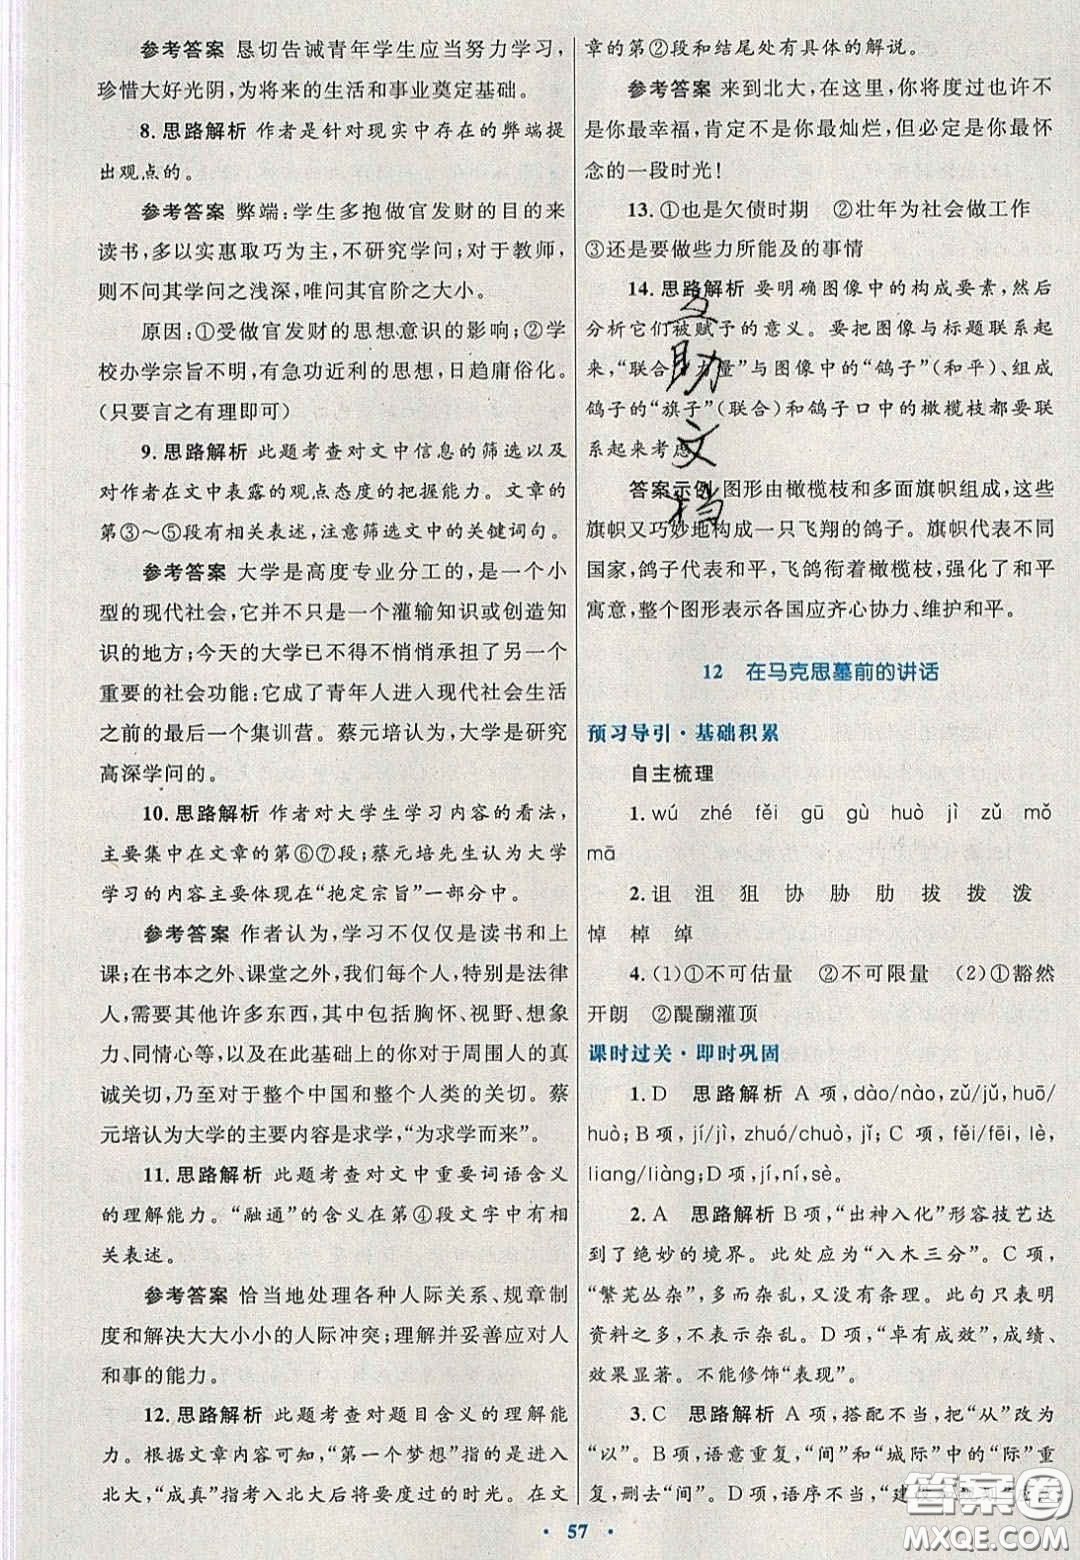 参考答案 恳切告诫青年学生应当努力学习,
珍惜大好光阴,为将来的生活和事业奠定基础。
8. 思路解析 作者是针对现实中存在的弊端提
出观点的。
参考答案 弊端:学生多抱做官发财的目的来
读书,多以实惠取巧为主,不研究学问;对于教师,
则不问其学问之浅深,唯问其官阶之大小。
原因:①受做官发财的思想意识的影响;②学
校办学宗旨不明,有急功近利的思想,日趋庸俗化。
(只要言之有理即可)
9. 思路解析 此题考查对文中信息的筛选以及
对作者在文中表露的观点态度的把握能力。文章的
第③~⑤段有相关表述,注意筛选文中的关键词句。
参考答案 大学是高度专业分工的,是一个小
型的现代社会,它并不只是一个灌输知识或创造知
识的地方;今天的大学已不得不悄悄承担了另一个
重要的社会功能;它成了青年人进入现代社会生活
之前的最后一个集训营。蔡元培认为,大学是研究
高深学问的。
10. 思路解析 作者对大学生学习内容的看法,
主要集中在文章的第⑥⑦段;蔡元培先生认为大学
学习的内容主要体现在“抱定宗旨”一部分中。
参考答案 作者认为,学习不仅仅是读书和上
课;在书本之外、课堂之外,我们每个人,特别是法律
人,需要其他许多东西,其中包括胸怀、视野、想象
力、同情心等,以及在此基础上的你对于周围人的真
诚关切,乃至对于整个中国和整个人类的关切。蔡
元培认为大学的主要内容是求学,“为求学而来”。
11. 思路解析 此题考查对文中重要词语含义
的理解能力。“融通”的含义在第④段文字中有相
关表述。
参考答案 恰当地处理各种人际关系、规章制
度和解决大大小小的人际冲突;理解并妥善应对人
和事的能力。
12. 思路解析 此题考查对题目含义的理解能
力。根据文章内容可知,“第一个梦想”指的是进入
北大,“成真”指考入北大后将要度过的时光。在文
章的第②段和结尾处有具体的解说。
参考答案 来到北大,在这里,你将度过也许不
是你最幸福,肯定不是你最灿烂,但必定是你最怀
念的一段时光!
13. ①也是欠债时期 ②壮年为社会做工作
③还是要做些力所能及的事情
14. 思路解析 要明确图像中的构成要素,然后
分析它们被赋予的意义。要把图像与标题联系起
来,“联合 力量”与图像中的“鸽子”(和平)、组成
鸽子的“旗子”(联合)和鸽子口中的橄榄枝都要联
系起来考虑
答案示例 图形由橄榄枝和多面旗帜组成,这些
旗帜又巧妙地构成一只飞翔的鸽子。旗帜代表不同
国家,鸽子代表和平,飞鸽衔着橄榄枝,强化了和平
寓意,整个图形表示各国应齐心协力、维护和平。
互助文档
12 在马克思墓前的讲话
预习导引·基础积累
自主梳理
1. wú zhé fěi gū gù huò jì zǔ mǒ
mā
2. 诅 沮 狙 协 胁 肋 拔 拨 泼
悼 棹 绰
4. (1)①不可估量 ②不可限量 (2)①豁然
开朗 ②醍醐灌顶
课时过关·即时巩固
1. D 思路解析 A 项, dào/nào, zǔ/jǔ, huō/
huò; B 项, jí/jī, zhuó/chuò, jǐ; C 项, fěi/fēi, lè,
liang/liàng; D 项, jí, ní, sè。
2. A 思路解析 B项,“出神入化”形容技艺达
到了绝妙的境界。此处应为“入木三分”。C 项,
“繁芜丛杂”,多而杂乱,又没有条理。此句只表明
资料之多,不表示杂乱。D 项,“卓有成效”,成绩、
效果显著。不能修饰“表现”。
3. C 思路解析 A 项,搭配不当,把“从”改为
“以”。B 项,语意重复,“间”和“城际”中的“际”重
复,删去“间”。D 项,语序不当,“建
57
答案圈
MXQE.COM